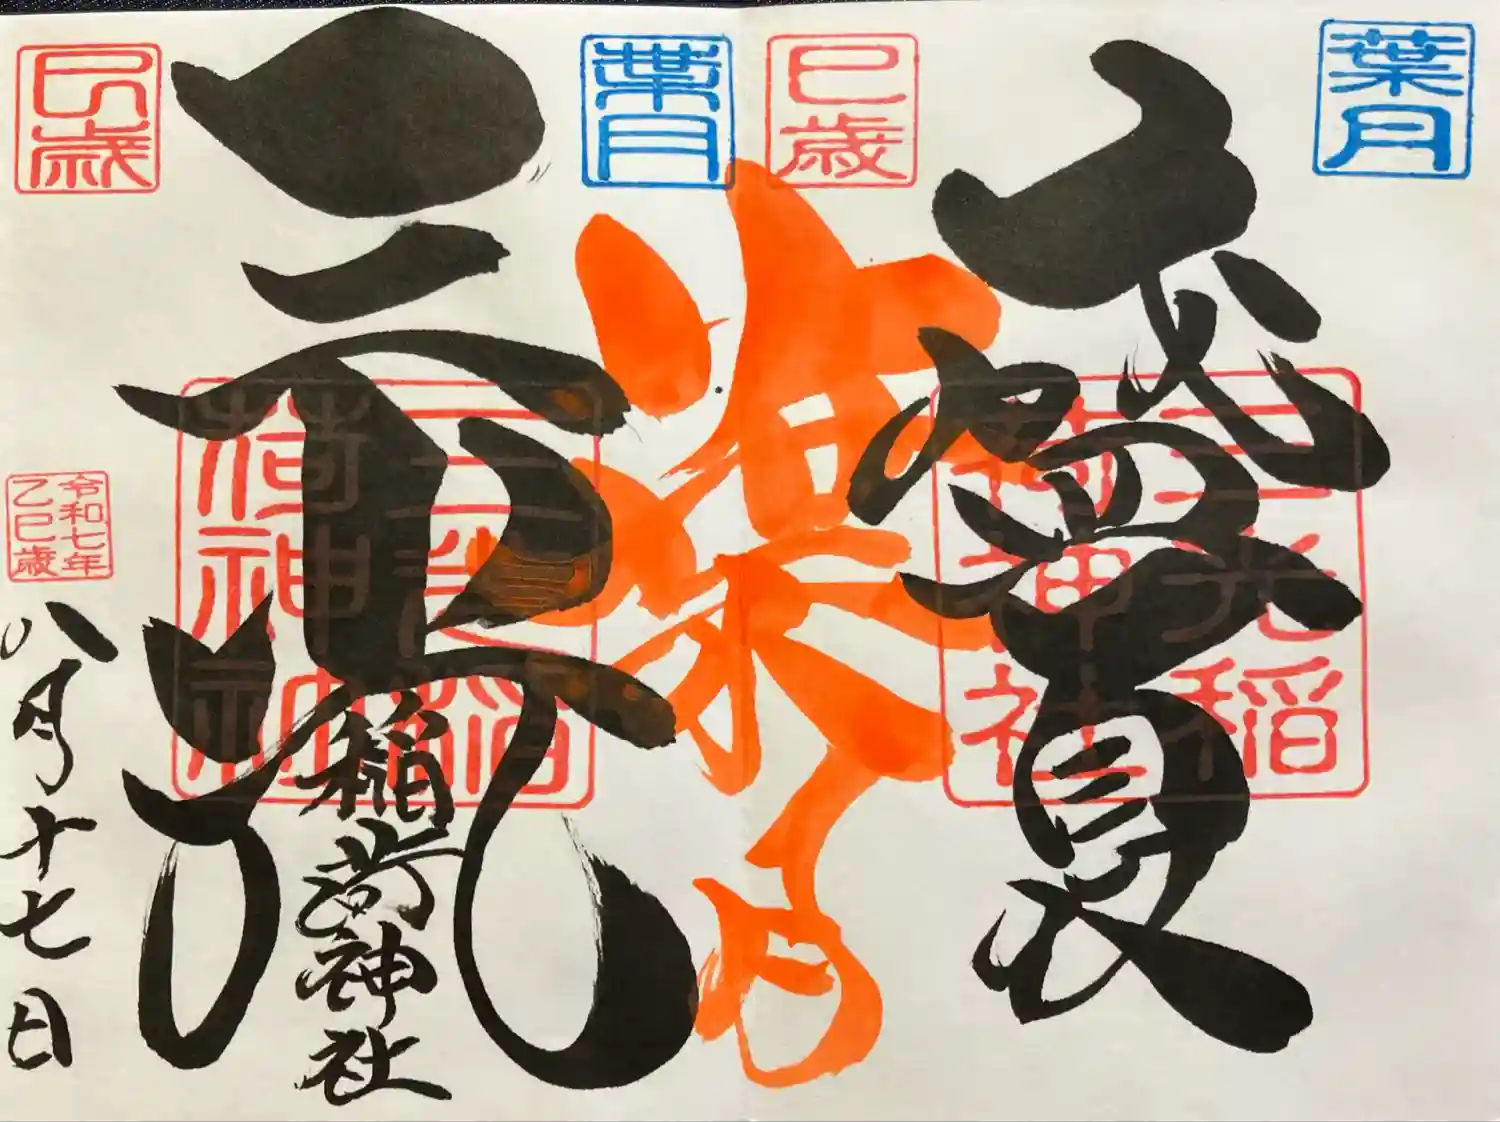 葉月
三光稲
荷神社
巳歳
葉月
三光
三光稲
荷神社
稲荷神社
巳歳
令和七年
乙巳歳
八月十七日